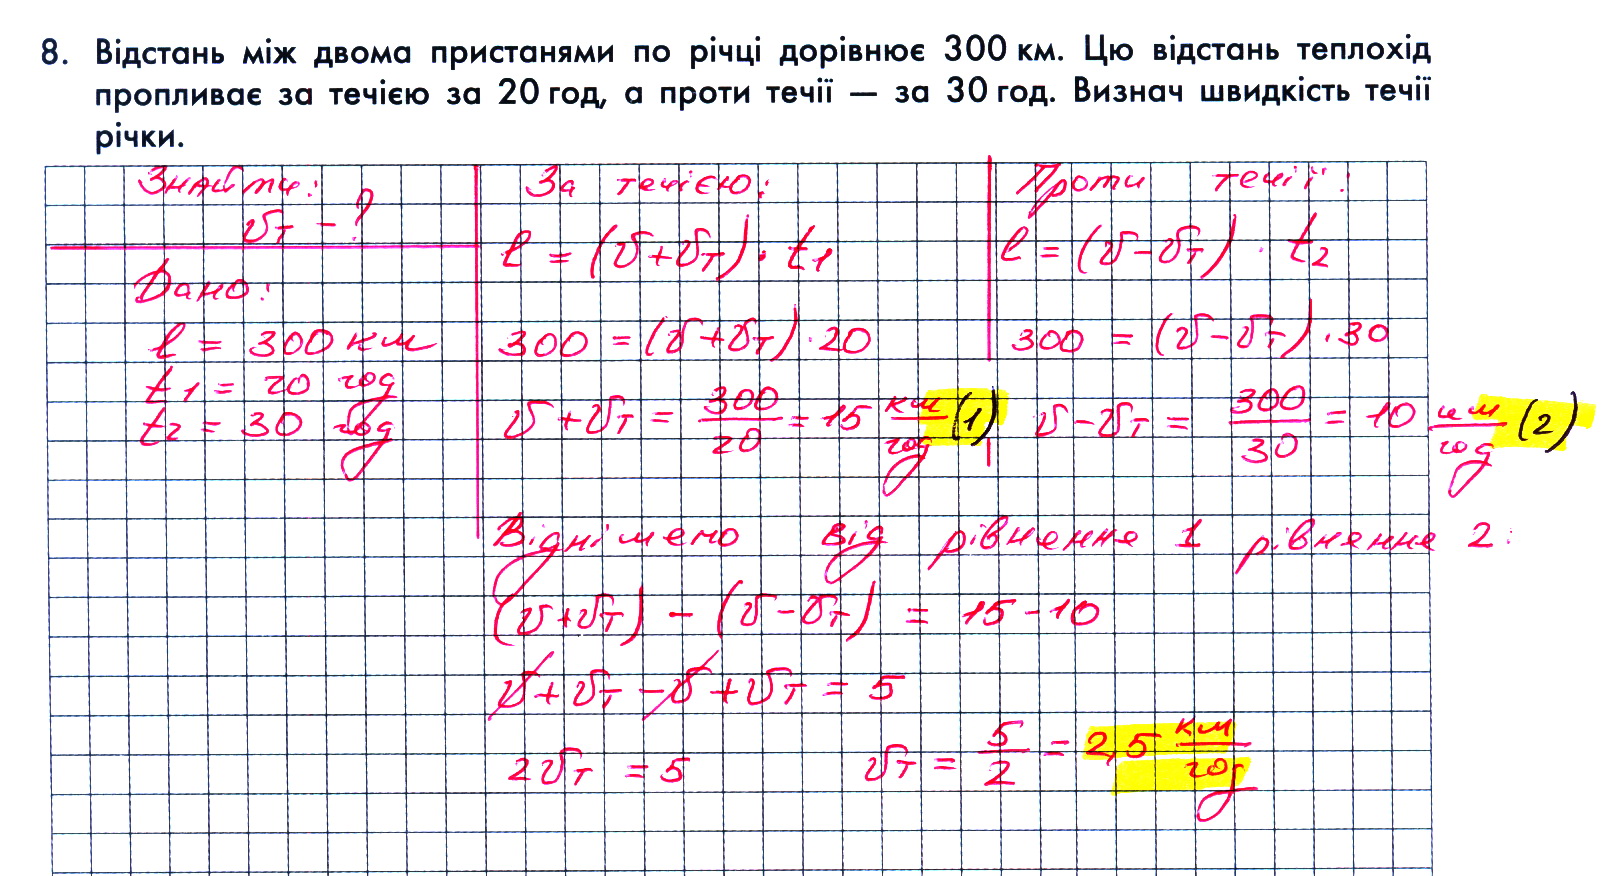 8. Відстань між двома пристанями по річці дорівнює 300 км. Цю відстань теплохід
пропливає за течією за 20 год, а проти течії — за 30 год. Визнач швидкість течії
річки.
Знайти:
υт - ?
Дано:
l = 300 км
t1 = 20 год
t2 = 30 год
За течією:
l = (υ+υт) · t1
300 = (υ+υт) · 20
υ+υт = 300/20 = 15 км/год (1)
Проти течії:
l = (υ-υт) · t2
300 = (υ-υт) · 30
υ-υт = 300/30 = 10 км/год (2)
Віднімемо від рівнення 1 рівнення 2:
(υ+υт) - (υ-υт) = 15-10
υ+υт-υ+υт = 5
2υт = 5 υт = 5/2 = 2,5 км/год